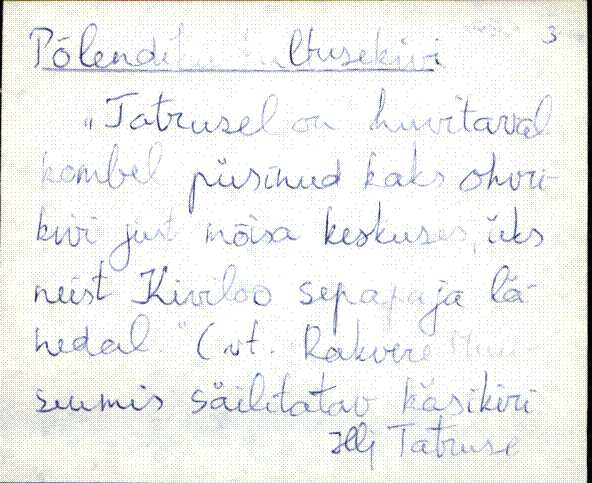 3
Põlendiku kultusekivi
"Tatrusel on huvitaval
kombel püsinud kaks ohvri-
kivi just mõisa keskuses, üks
neist Kiviloo sepapaja lä-
hedal" (vt. Rakvere Muu-
seumis säilitatav käsikiri
Tatruse